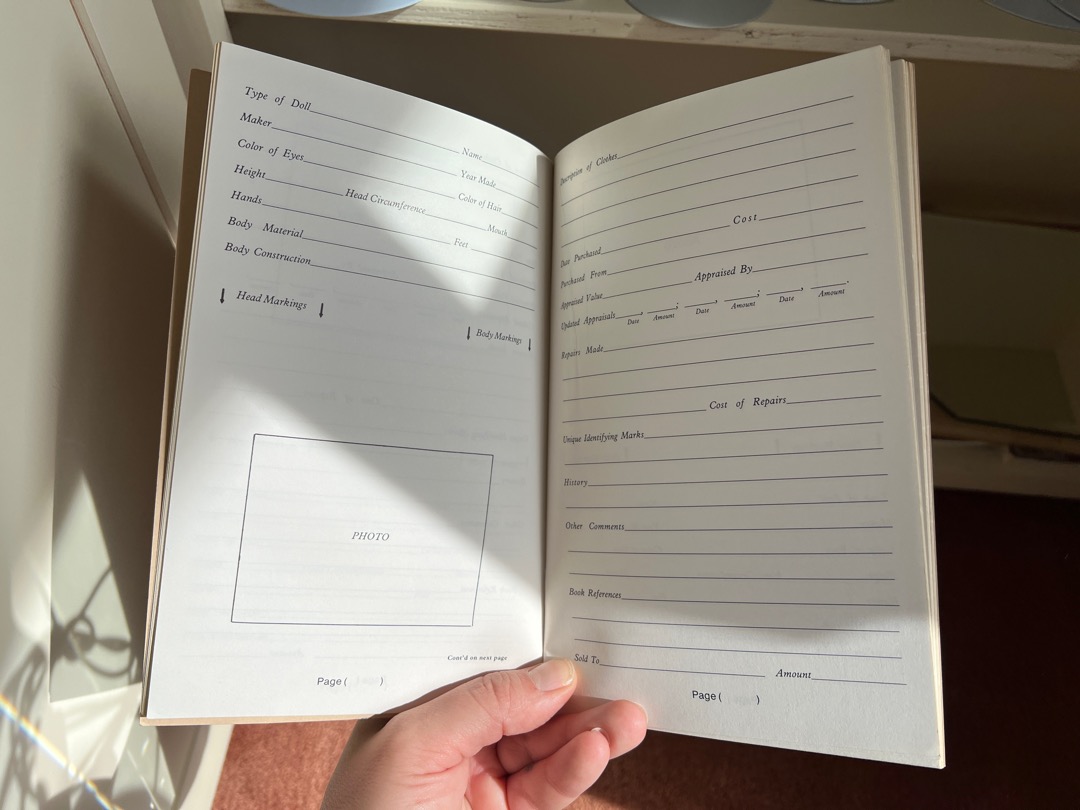 Type of Doll
Maker Name
Color of Eyes Year Made
Height Head Circumference Color of Hair
Hands Feet Mouth
Body Material
Body Construction
Head Markings
Body Markings
PHOTO
Cont'd on next page
Page ( )
Description of Clothes
Date Purchased Cost
Purchased From
Appraised Value Appraised By
Updated Appraisals , ; , ; , .
Date Amount Date Amount Date Amount
Repairs Made
Cost of Repairs
Unique Identifying Marks
History
Other Comments
Book References
Sold To Amount
Page ( )